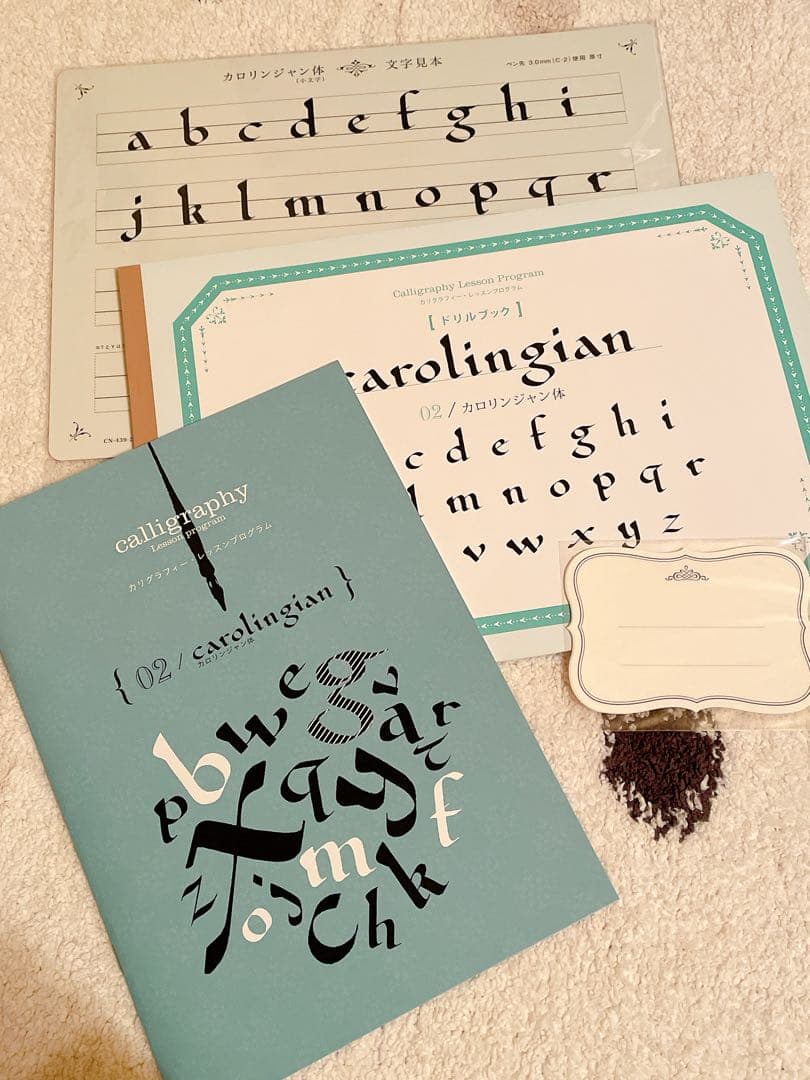 カロリンジャン体 文字見本
(小文字)
ペン先 3.0mm(C-2)使用 原寸
a b c d e f g h i
j k l m n o p q r
CN-439-
Calligraphy Lesson Program
カリグラフィー・レッスンプログラム
[ドリルブック]
carolingian
02 / カロリンジャン体
c d e f g h i
l m n o p q r
v w x y z
calligraphy
Lesson program
カリグラフィー・レッスンプログラム
{ 02 / carolingian }
カロリンジャン体
e g v
b w a r
p q y t
x
z o j m f
c h k